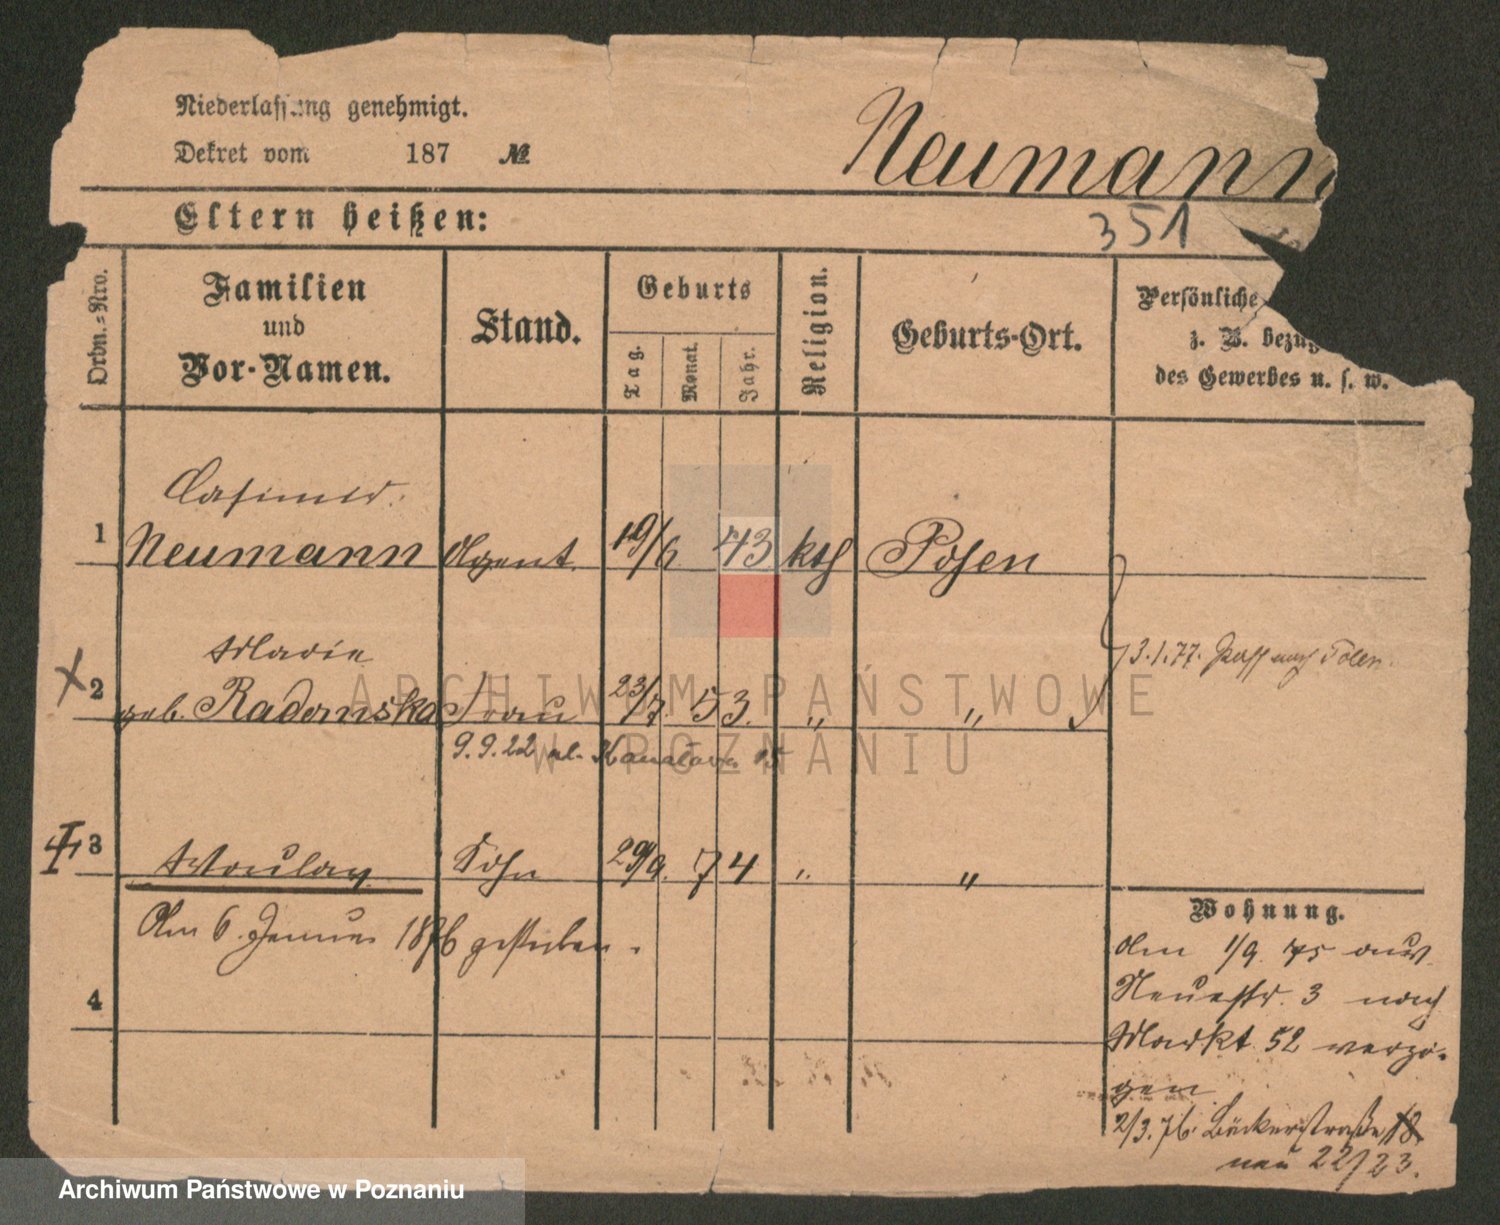 Niederlassung genehmigt.
Dekret vom 187 №
Neumann
Eltern heißen:
351
Ordn.-Nro.
Familien
und
Vor-Namen.
Stand.
Geburts
Tag.
Monat.
Jahr.
Religion.
Geburts-Ort.
Persönliche
z. B. bezug
des Gewerbes u. s. w.
Casimir
1 Neumann Agent. 19/6 43 kth Posen
Marie
2 geb. Radomska Frau 23/7. 53. " "
3.1.77. Paß nach Polen.
9.9.22 ul. 15
3 Sohn 29/9. 74 " "
Am 6. Januar 1876 gestorben.
4
Wohnung.
Am 1/9. 75 aus
Neuestr. 3 nach
Markt 52 verzo-
gen
2/3.76. Bäckerstraße 18
neu 22/23.
ARCHIWUM PAŃSTWOWE
W POZNANIU
Archiwum Państwowe w Poznaniu